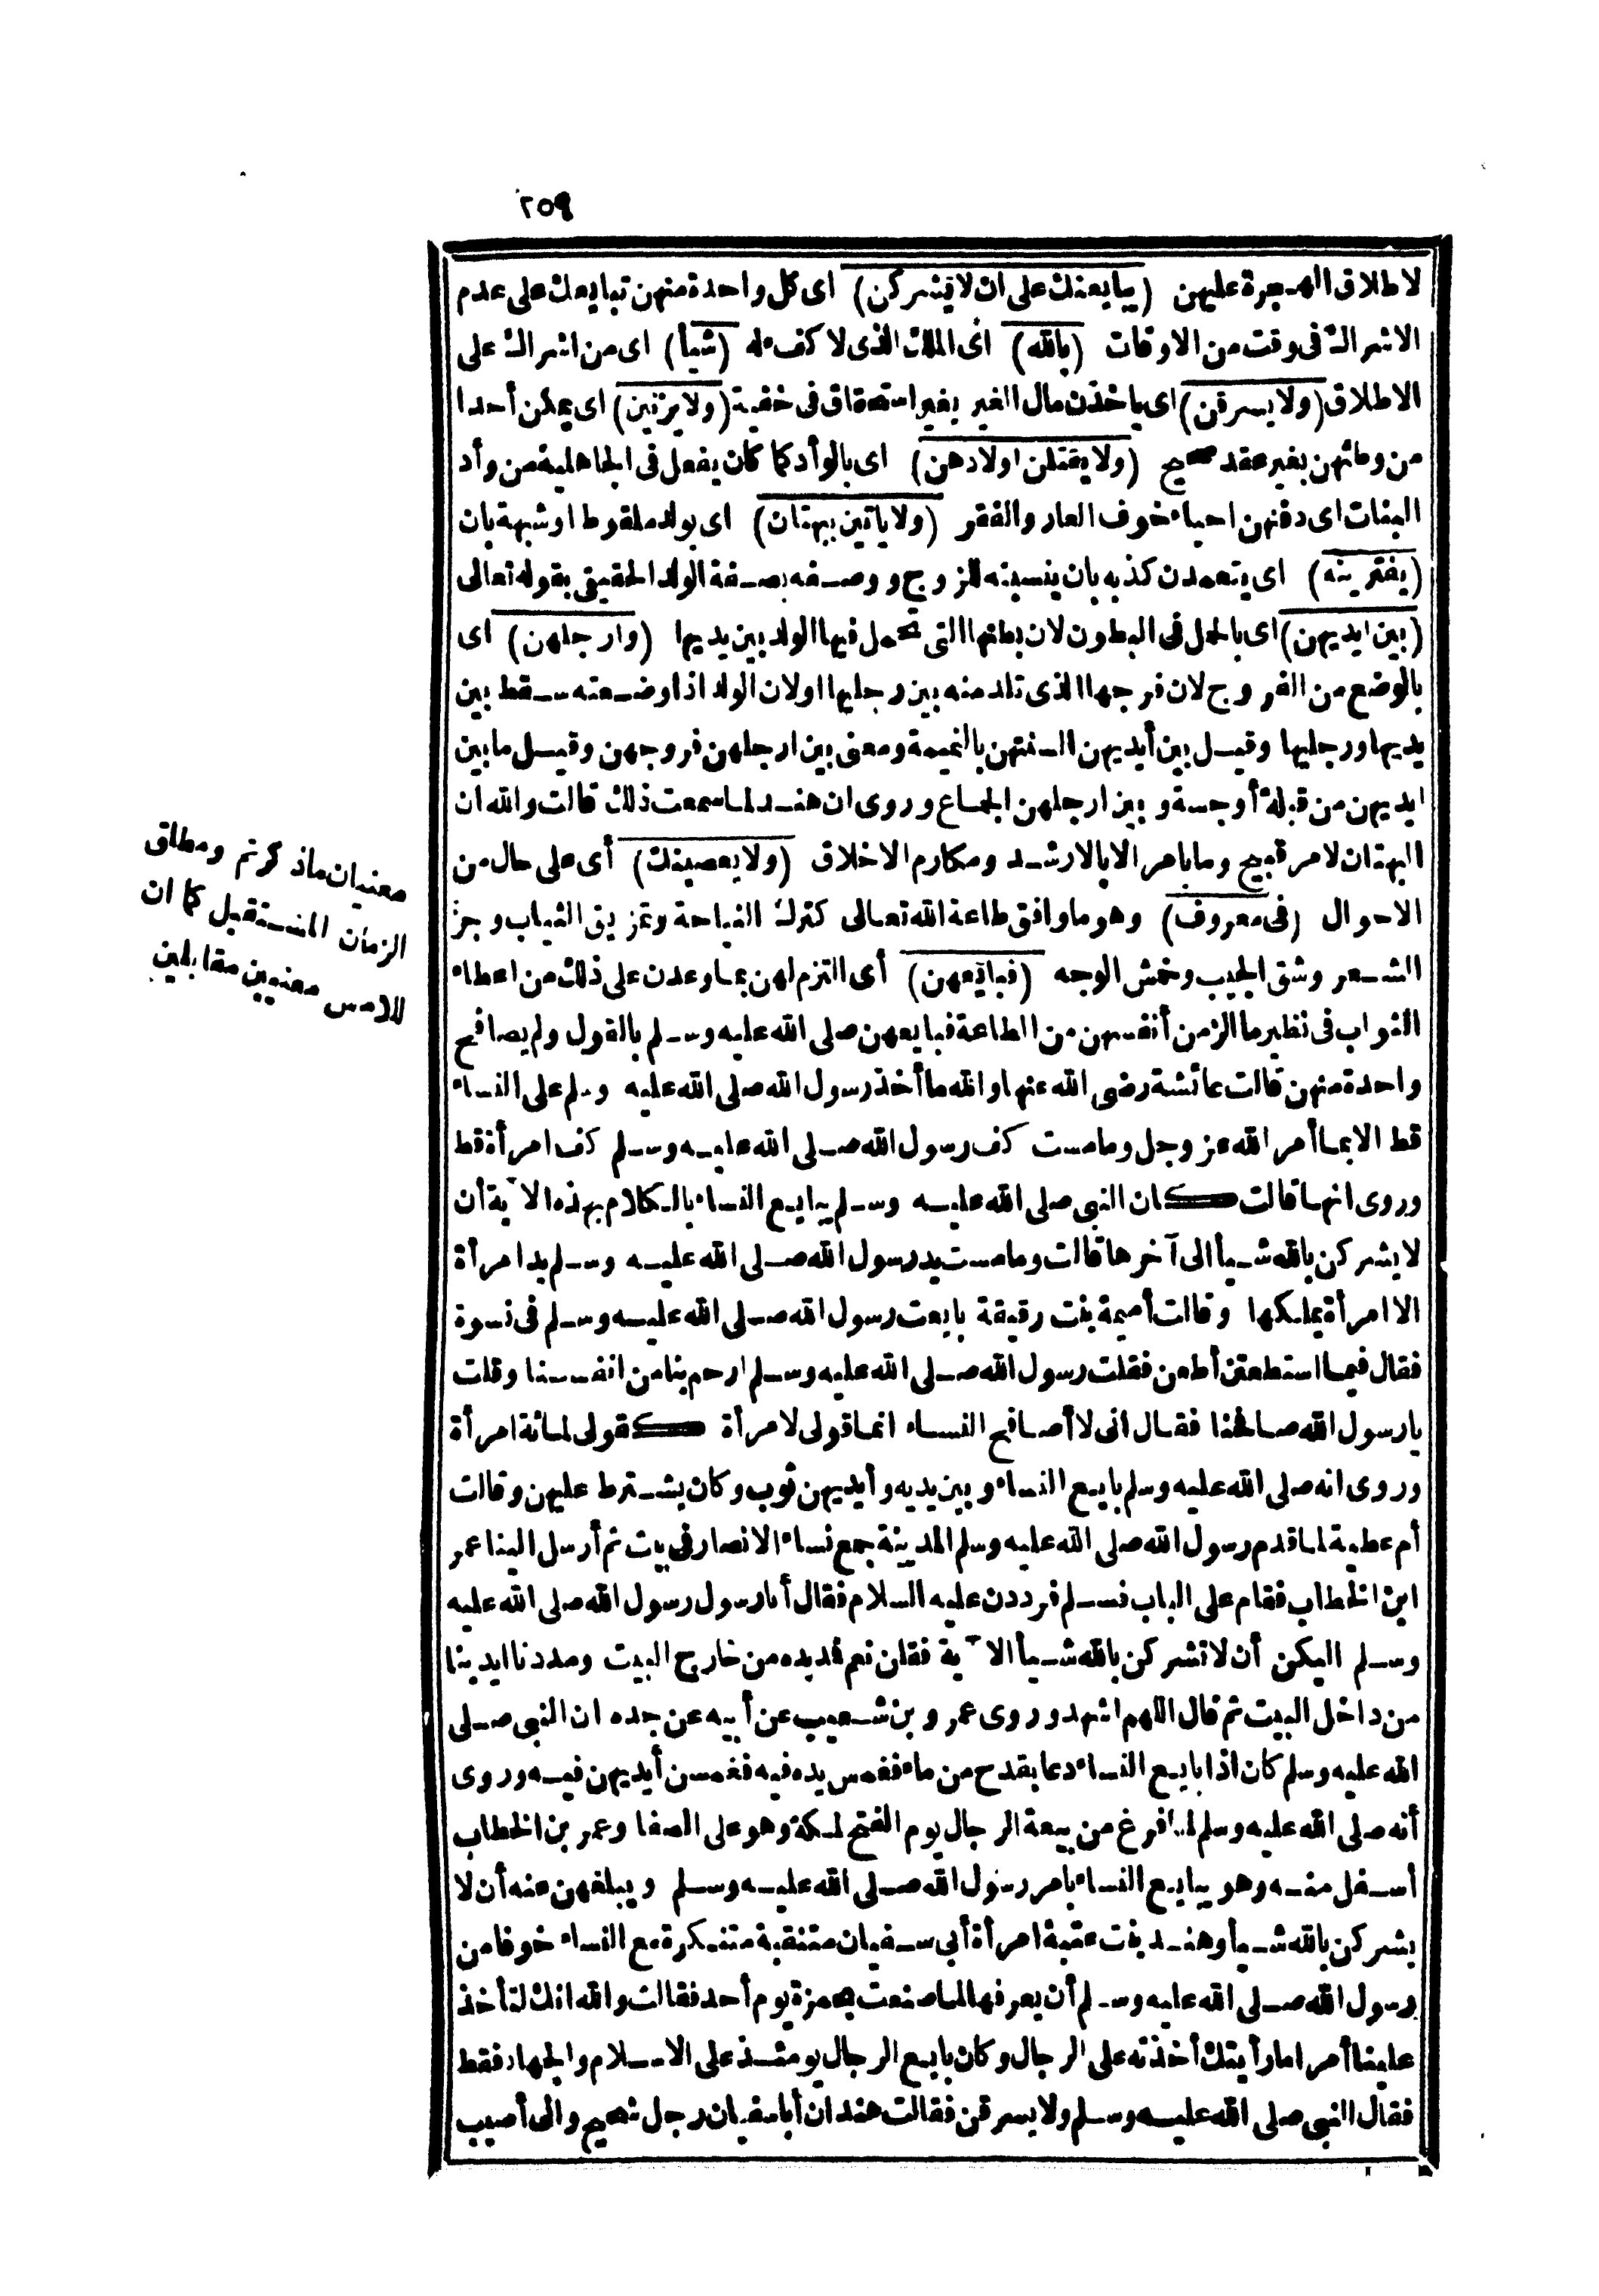 ٢٥٩
لاطلاق الهجرة عليهن (يبايعنك على ان لا يشركن) اى كل واحدة منهن تبايعك على عدم
الاشراك فى وقت من الاوقات (بالله) أى الملك الذى لا كفء له (شيأ) اى من اشراك على
الاطلاق (ولا يسرقن) اى ياخذن مال الغير بغير استحقاق فى خفية (ولا يزنين) اى يمكن أحدا
من وطئهن بغير عقد صحيح (ولا يقتلن اولادهن) اى بالوأد كما كان يفعل فى الجاهلية من وأد
البنات اى دفنهن احياء خوف العار والفقر (ولا ياتين ببهتان) اى بولد ملقوط او شبهة بان
(يفترينه) اى يتعمدن كذبه بان ينسبنه للزوج ووصفه بصفة الولد الحقيقى بقوله تعالى
(بين ايديهن) اى بالحمل فى البطون لان بطنها التى تحمل فيها الولد بين يديها (وارجلهن) اى
بالوضع من الفروج لان فرجها الذى تلد منه بين رجليها اولان الولد اذا وضعته سقط بين
يديها ورجليها وقيل بين أيديهن السنتهن بالنميمة ومعنى بين ارجلهن فروجهن وقيل ما بين
ايديهن من قبلة أو جسة وبين ارجلهن الجماع وروى ان هند لما سمعت ذلك قالت والله ان
البهتان لامر قبيح وما يامر الا بالارشد ومكارم الاخلاق (ولا يعصينك) أى على حال من
الاحوال (فى معروف) وهو ما وافق طاعة الله تعالى كترك النياحة وتمزيق الثياب وجز
الشعر وشق الجيب وخمش الوجه (فبايعهن) أى التزم لهن بما وعدن على ذلك من اعطاء
الثواب فى نظير ما الزمن أنفسهن من الطاعة فبايعهن صلى الله عليه وسلم بالقول ولم يصافح
واحدة منهن قالت عائشة رضى الله عنها والله ما أخذ رسول الله صلى الله عليه وسلم على النساء
قط الا بما أمر الله عز وجل وما مست كف رسول الله صلى الله عليه وسلم كف امرأة قط
وروى انها قالت كان النبى صلى الله عليه وسلم يبايع النساء بالكلام بهذه الآية أن
لا يشركن بالله شيأ الى آخرها قالت وما مست يد رسول الله صلى الله عليه وسلم يد امرأة
الا امرأة يملكها وقالت أميمة بنت رقيقة بايعت رسول الله صلى الله عليه وسلم فى نسوة
فقال فيما استطعتن أطعن فقلت رسول الله صلى الله عليه وسلم ارحم بنا من انفسنا وقلت
يا رسول الله صافحنا فقال انى لا أصافح النساء انما قولى لامرأة كقولى لمائة امرأة
وروى انه صلى الله عليه وسلم بايع النساء وبين يديه وأيديهن ثوب وكان يشترط عليهن وقالت
أم عطية لما قدم رسول الله صلى الله عليه وسلم المدينة جمع نساء الانصار فى بيت ثم أرسل الينا عمر
ابن الخطاب فقام على الباب فسلم فرددن عليه السلام فقال أنا رسول رسول الله صلى الله عليه
وسلم اليكن أن لا تشركن بالله شيأ الآية فقلن نعم فمد يده من خارج البيت ومددنا ايدينا
من داخل البيت ثم قال اللهم اشهد وروى عمرو بن شعيب عن أبيه عن جده ان النبى صلى
الله عليه وسلم كان اذا بايع النساء دعا بقدح من ماء فغمس يده فيه فغمسن أيديهن فيه وروى
أنه صلى الله عليه وسلم لما فرغ من بيعة الرجال يوم الفتح لمكة وهو على الصفا وعمر بن الخطاب
أسفل منه وهو يبايع النساء بامر رسول الله صلى الله عليه وسلم ويبلغهن عنه أن لا
يشركن بالله شيأ وهند بنت عتبة امرأة أبى سفيان متنقبة متنكرة مع النساء خوفا من
رسول الله صلى الله عليه وسلم أن يعرفها لما صنعت بحمزة يوم أحد فقالت والله انك لتأخذ
علينا أمرا ما رأيتك أخذته على الرجال وكان بايع الرجال يومئذ على الاسلام والجهاد فقط
فقال النبى صلى الله عليه وسلم ولا يسرقن فقالت هند ان أبا سفيان رجل شحيح وانى أصيب
معنيان ماذكرتم ومطلق
الزمان المستقبل كما ان
للامس معنيين مقابلين